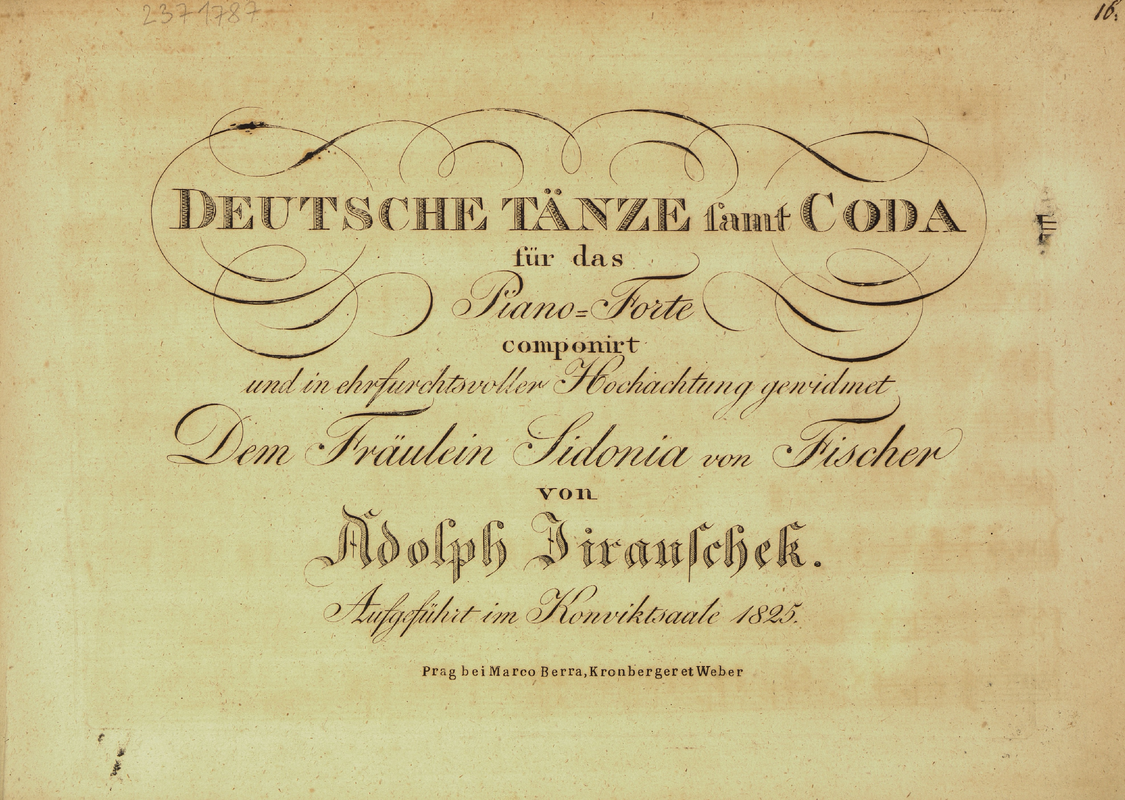 2371787
16.
DEUTSCHE TÄNZE ſamt CODA
für das
Piano=Forte
componirt
und in ehrfurchtsvoller Hochachtung gewidmet
Dem Fräulein Sidonia von Fischer
von
Adolph Jirauſchek.
Aufgeführt im Konviktsaale 1825.
Prag bei Marco Berra, Kronberger et Weber